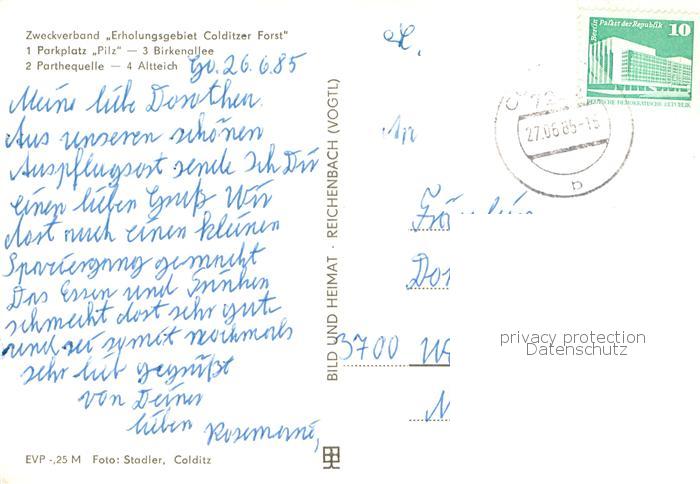 Zweckverband „Erholungsgebiet Colditzer Forst“
1 Parkplatz „Pilz“ — 3 Birkenallee
2 Parthequelle — 4 Altteich
26.6.85
Meine liebe Dorothea.
Aus unseren schönen
Ausflugsort sende Ich Dir
einen lieben Gruß Wir
dort noch einen kleinen
Spaziergang gemacht
Das Essen und Trinken
schmeckt dort sehr gut
und sei somit nochmals
sehr lieb gegrüßt
von Deiner
lieben Rosemarie,
EVP -,25 M Foto: Stadler, Colditz
BILD UND HEIMAT · REICHENBACH (VOGTL)
Berlin Palast der Republik 10
DEUTSCHE DEMOKRATISCHE REPUBLIK
27.06.85-15
b
An
3700
privacy protection
Datenschutz